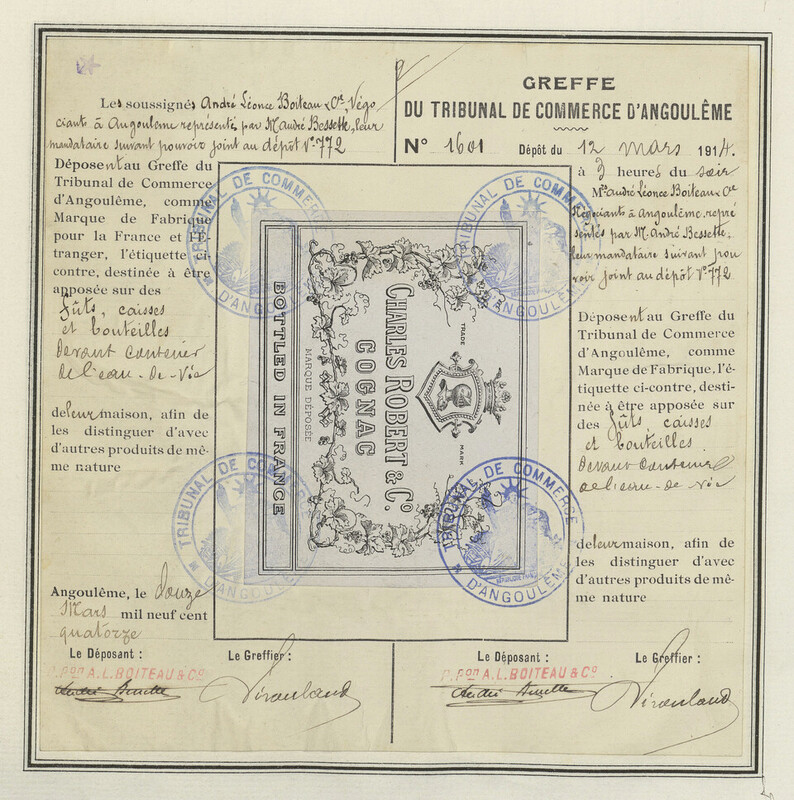 Les soussignés André Léonce Boiteau & Cie, Négo
ciants à Angoulême représentés par M. André Bessette, leur
mandataire suivant pouvoir joint au dépôt No 772
Déposent au Greffe du
Tribunal de Commerce
d'Angoulême, comme
Marque de Fabrique
pour la France et l'É-
tranger, l'étiquette ci-
contre, destinée à être
apposée sur des
fûts, caisses
et bouteilles
devant contenir
de l'eau-de-vie
de leur maison, afin de
les distinguer d'avec
d'autres produits de mê-
me nature
Angoulême, le douze
Mars mil neuf cent
quatorze
Le Déposant :
Le Greffier :
P. Pon A.L. BOITEAU & Co
André Bessette
GREFFE
DU TRIBUNAL DE COMMERCE D'ANGOULÊME
No 1601 Dépôt du 12 mars 1914.
à 3 heures du soir
Mrs André Léonce Boiteau & Cie
Négociants à Angoulême repré
sentés par M. André Bessette,
leur mandataire suivant pou
voir joint au dépôt No 772
Déposent au Greffe du
Tribunal de Commerce
d'Angoulême, comme
Marque de Fabrique, l'é-
tiquette ci-contre, desti-
née à être apposée sur
des fûts, caisses
et bouteilles
devant contenir
de l'eau-de-vie
de leur maison, afin de
les distinguer d'avec
d'autres produits de mê-
me nature
Le Déposant :
Le Greffier :
P. Pon A.L. BOITEAU & Co
André Bessette
TRADE MARK
CHARLES ROBERT & Co.
COGNAC
MARQUE DÉPOSÉE
BOTTLED IN FRANCE
TRIBUNAL DE COMMERCE
D'ANGOULÊME
TRIBUNAL DE COMMERCE
D'ANGOULÊME
TRIBUNAL DE COMMERCE
D'ANGOULÊME
TRIBUNAL DE COMMERCE
D'ANGOULÊME